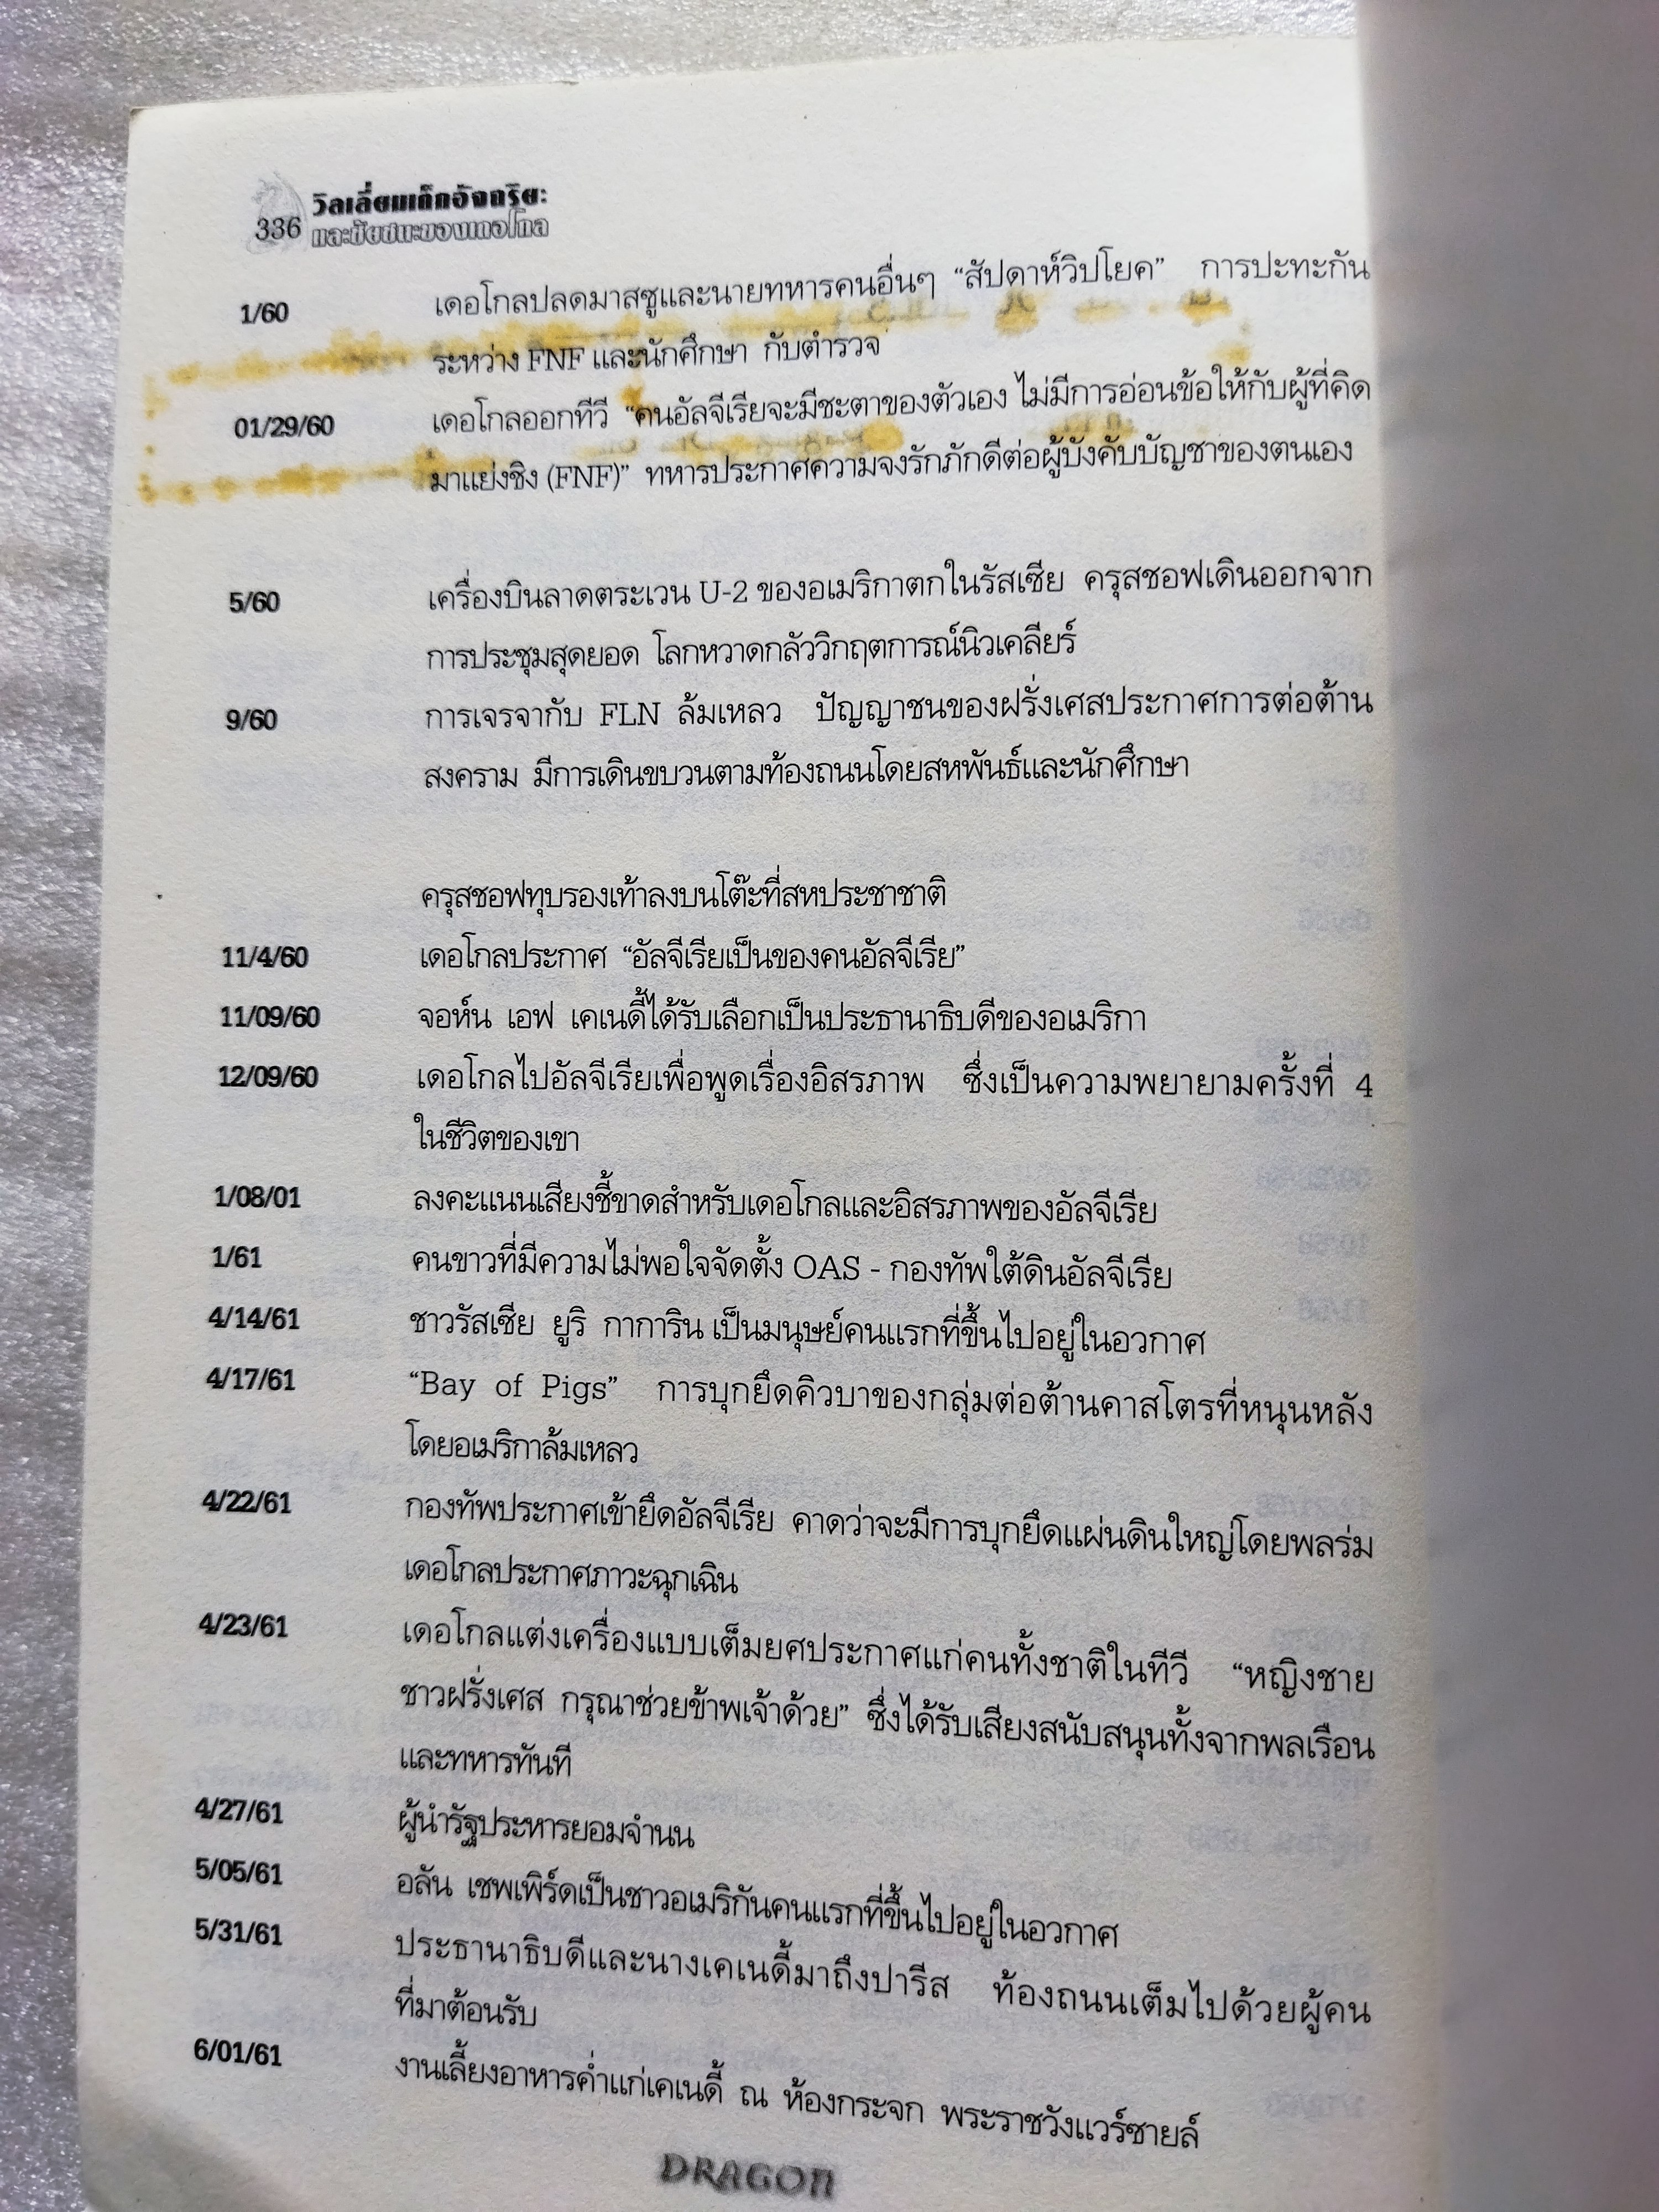 วิลเลี่ยมเด็กอัจฉริยะ
336 และชัยชนะของเดอโกล
1/60 เดอโกลปลดมาสซูและนายทหารคนอื่นๆ “สัปดาห์วิปโยค” การปะทะกัน
ระหว่าง FNF และนักศึกษา กับตำรวจ
01/29/60 เดอโกลออกทีวี “คนอัลจีเรียจะมีชะตาของตัวเอง ไม่มีการอ่อนข้อให้กับผู้ที่คิด
มาแย่งชิง (FNF)” ทหารประกาศความจงรักภักดีต่อผู้บังคับบัญชาของตนเอง
5/60 เครื่องบินลาดตระเวน U-2 ของอเมริกาตกในรัสเซีย ครุสชอฟเดินออกจาก
การประชุมสุดยอด โลกหวาดกลัววิกฤตการณ์นิวเคลียร์
9/60 การเจรจากับ FLN ล้มเหลว ปัญญาชนของฝรั่งเศสประกาศการต่อต้าน
สงคราม มีการเดินขบวนตามท้องถนนโดยสหพันธ์และนักศึกษา
ครุสชอฟทุบรองเท้าลงบนโต๊ะที่สหประชาชาติ
11/4/60 เดอโกลประกาศ “อัลจีเรียเป็นของคนอัลจีเรีย”
11/09/60 จอห์น เอฟ เคเนดี้ได้รับเลือกเป็นประธานาธิบดีของอเมริกา
12/09/60 เดอโกลไปอัลจีเรียเพื่อพูดเรื่องอิสรภาพ ซึ่งเป็นความพยายามครั้งที่ 4
ในชีวิตของเขา
1/08/01 ลงคะแนนเสียงชี้ขาดสำหรับเดอโกลและอิสรภาพของอัลจีเรีย
1/61 คนขาวที่มีความไม่พอใจจัดตั้ง OAS - กองทัพใต้ดินอัลจีเรีย
4/14/61 ชาวรัสเซีย ยูริ กาการิน เป็นมนุษย์คนแรกที่ขึ้นไปอยู่ในอวกาศ
4/17/61 “Bay of Pigs” การบุกยึดคิวบาของกลุ่มต่อต้านคาสโตรที่หนุนหลัง
โดยอเมริกาล้มเหลว
4/22/61 กองทัพประกาศเข้ายึดอัลจีเรีย คาดว่าจะมีการบุกยึดแผ่นดินใหญ่โดยพลร่ม
เดอโกลประกาศภาวะฉุกเฉิน
4/23/61 เดอโกลแต่งเครื่องแบบเต็มยศประกาศแก่คนทั้งชาติในทีวี “หญิงชาย
ชาวฝรั่งเศส กรุณาช่วยข้าพเจ้าด้วย” ซึ่งได้รับเสียงสนับสนุนทั้งจากพลเรือน
และทหารทันที
4/27/61 ผู้นำรัฐประหารยอมจำนน
5/05/61 อลัน เชพเพิร์ดเป็นชาวอเมริกันคนแรกที่ขึ้นไปอยู่ในอวกาศ
5/31/61 ประธานาธิบดีและนางเคเนดี้มาถึงปารีส ท้องถนนเต็มไปด้วยผู้คน
ที่มาต้อนรับ
6/01/61 งานเลี้ยงอาหารค่ำแก่เคเนดี้ ณ ห้องกระจก พระราชวังแวร์ซายล์
DRAGON